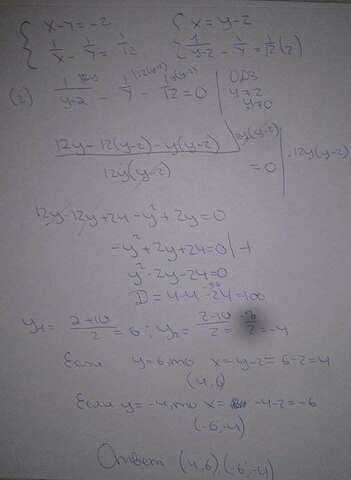 { x-y=-2    { x=y-2
{ 1/x - 1/y = 1/12    { 1/(y-2) - 1/y = 1/12 (2)
(2) 1/(y-2) - 1/y - 1/12 = 0 | ОДЗ
y≠2
y≠0
(12y-12(y-2)-y(y-2))/(12y(y-2)) = 0 | ·12y(y-2)
12y-12y+24-y²+2y=0
-y²+2y+24=0 | -1
y²-2y-24=0
D=4-4·-24=100
y₁= (2+10)/2 = 6; y₂= (2-10)/2 = -8/2 = -4
Если y=6, то x=y-2=6-2=4
(4,6)
Если y=-4, то x= -4-2=-6
(-6,-4)
Ответ (4,6)(-6,-4)